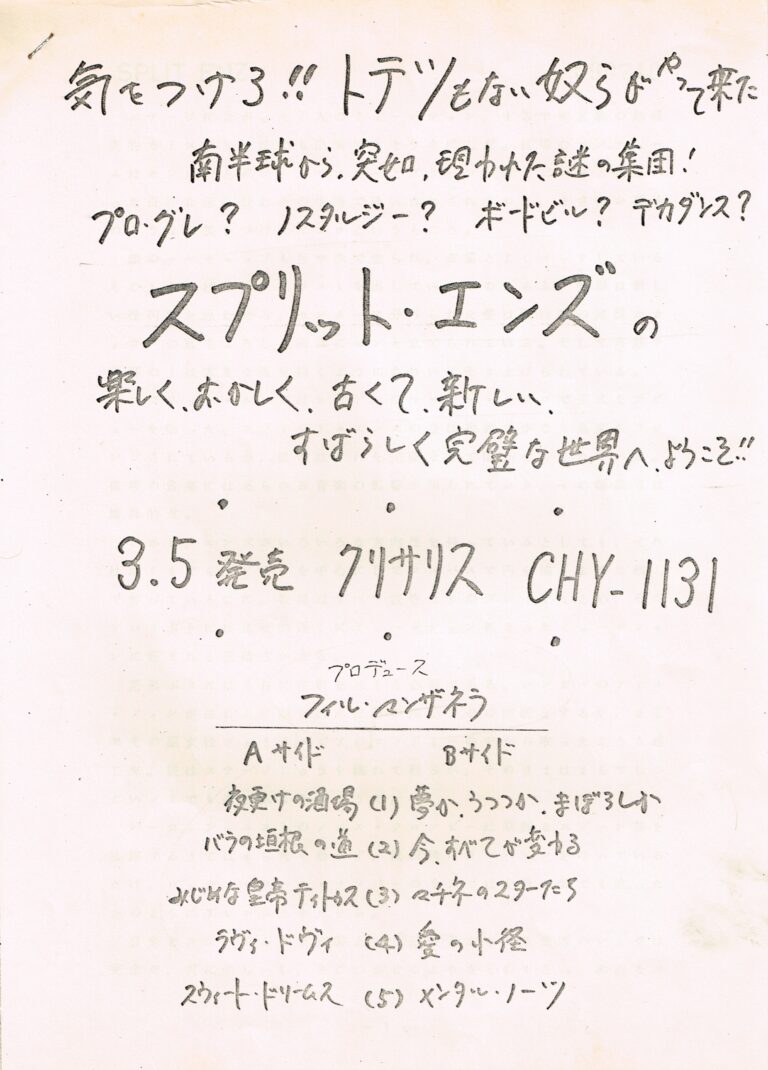 気をつけろ!! トテツもない奴らがやって来た
南半球から、突如、現われた謎の集団!
プロ・グレ? ノスタルジー? ボードビル? デカダンス?
スプリット・エンズの
楽しく、おかしく、古くて、新しい、
すばらしく完璧な世界へ、ようこそ!!
3.5 発売 クリサリス CHY-1131
プロデュース
フィル・マンザネラ
Aサイド Bサイド
夜更けの酒場 (1) 夢か、うつつか、まぼろしか
バラの垣根の道 (2) 今、すべてが変わる
みじめな皇帝ティトカス (3) マチネのスターたち
ラヴィ・ドヴィ (4) 愛の小径
スウィート・ドリームス (5) メンタル・ノーツ